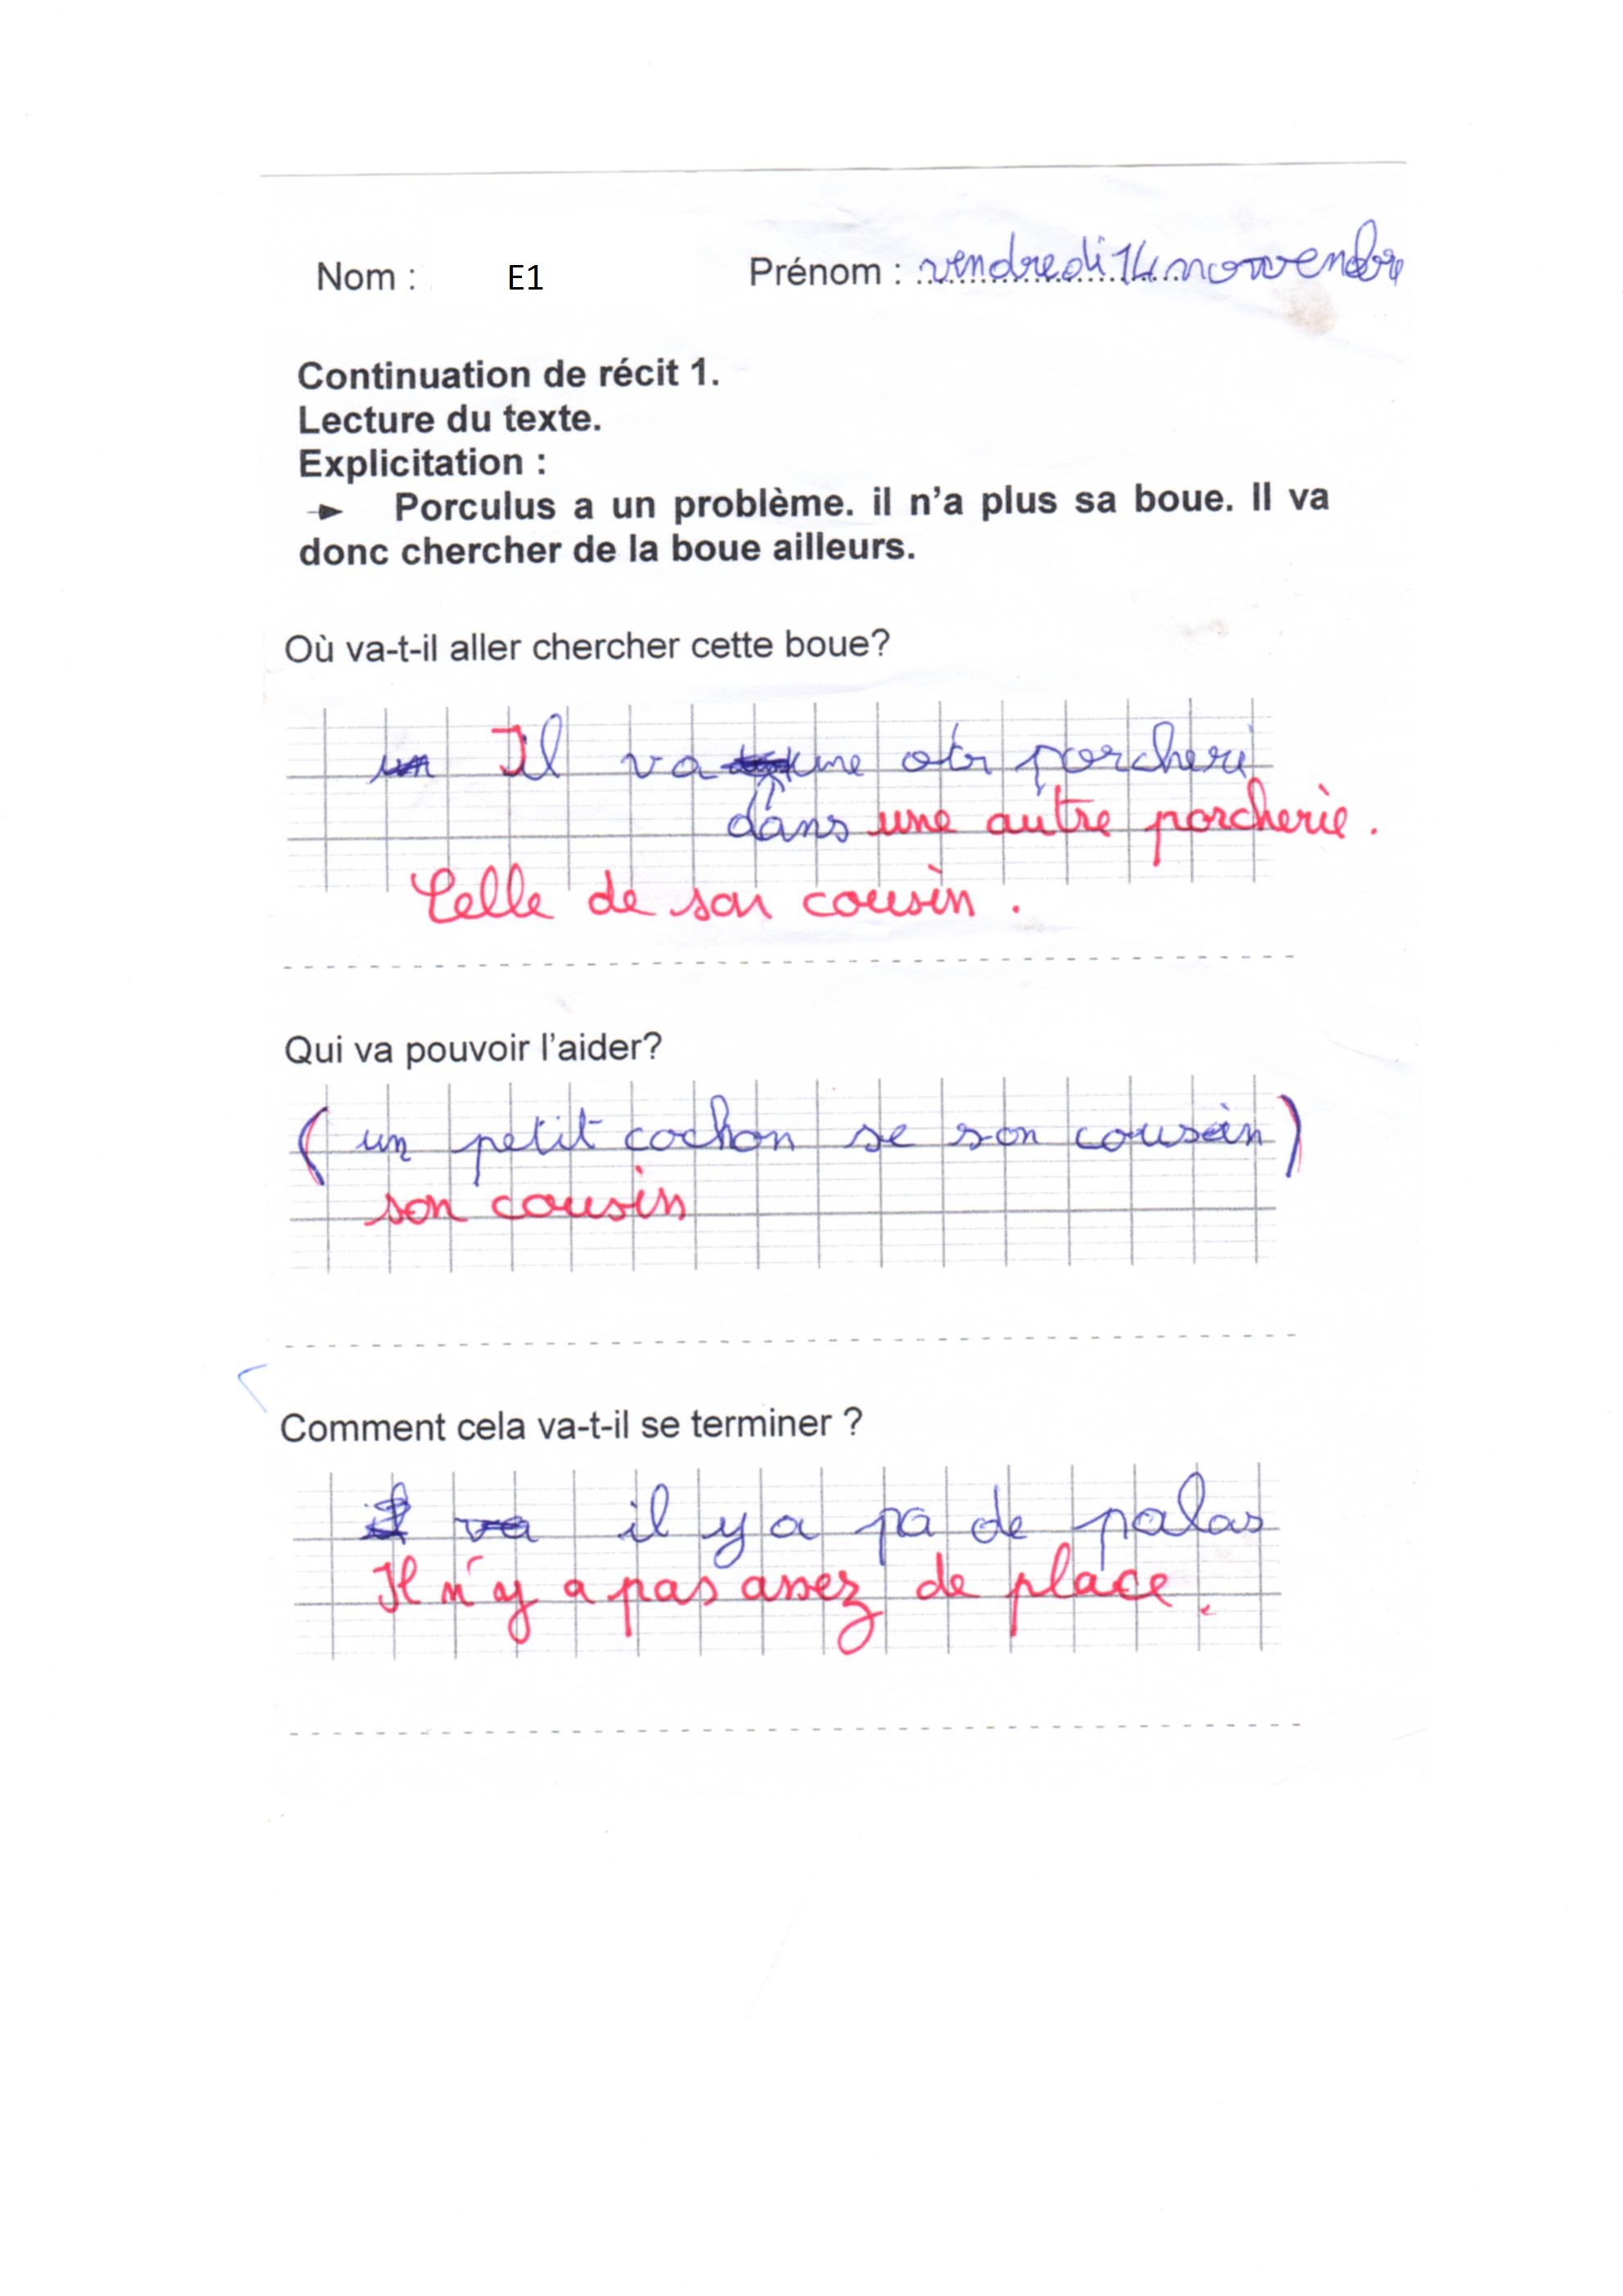 Nom : E1 Prénom : vendredi 14 novvendre
Continuation de récit 1.
Lecture du texte.
Explicitation :
Porculus a un problème. il n'a plus sa boue. Il va
donc chercher de la boue ailleurs.
Où va-t-il aller chercher cette boue?
un Il va une otr porcheri
dans une autre porcherie.
Celle de son cousin.
Qui va pouvoir l'aider?
( un petit cochon se son cousin )
son cousin
Comment cela va-t-il se terminer ?
Il va il y a pa de palas
Il n'y a pas assez de place.